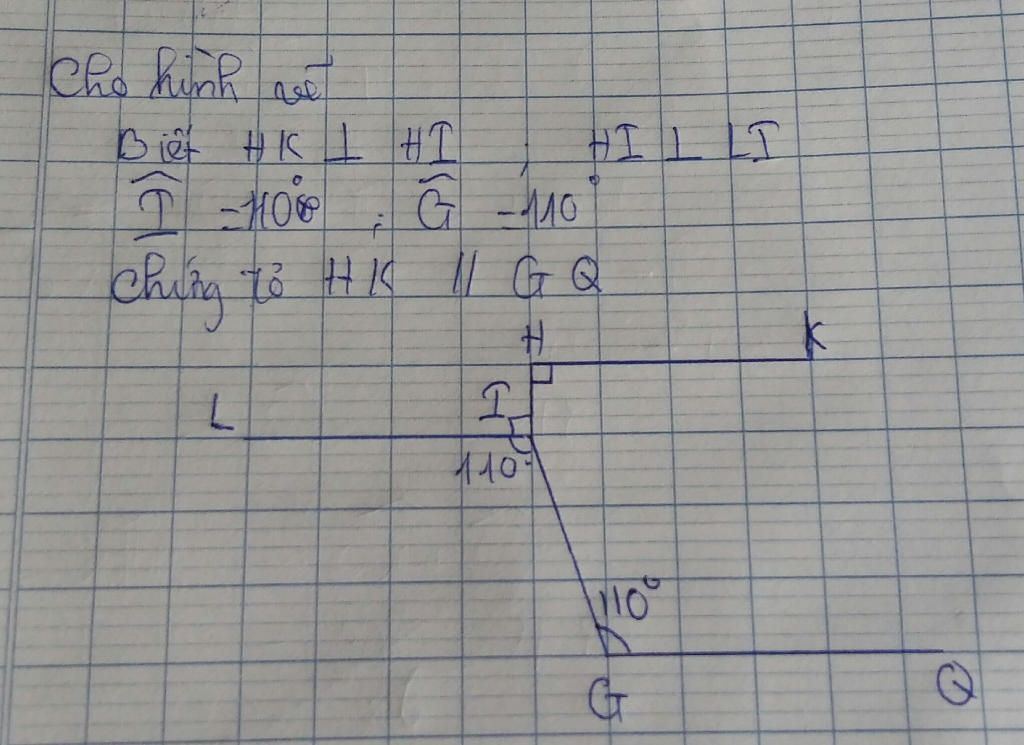 Cho hình vẽ
Biết HK ⊥ HI , HI ⊥ LI
Î = 110° ; Ĝ = 110°
Chứng tỏ HK // GQ
H
K
L
I
110°
110°
G
Q